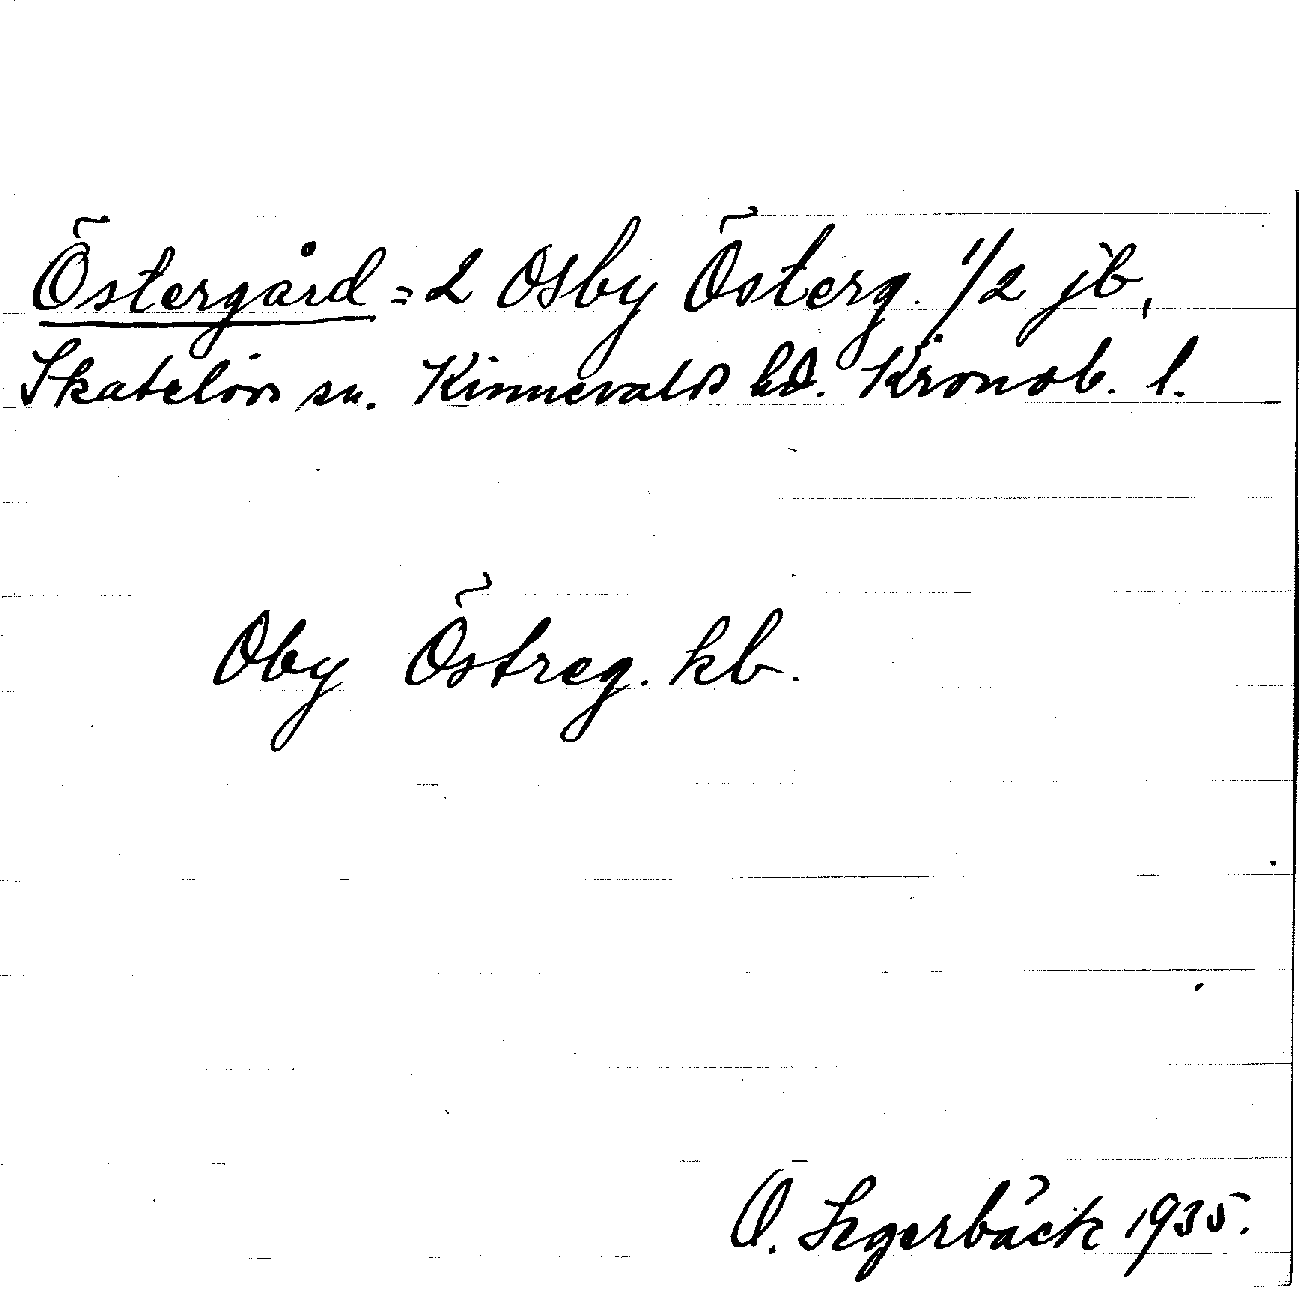 Östergård = 2 Osby Österg. 1/2 jb,
Skatelövs sn. Kinnevalds hd. Kronob. l.
Oby Östreg. kb.
O. Segerbäck 1935.